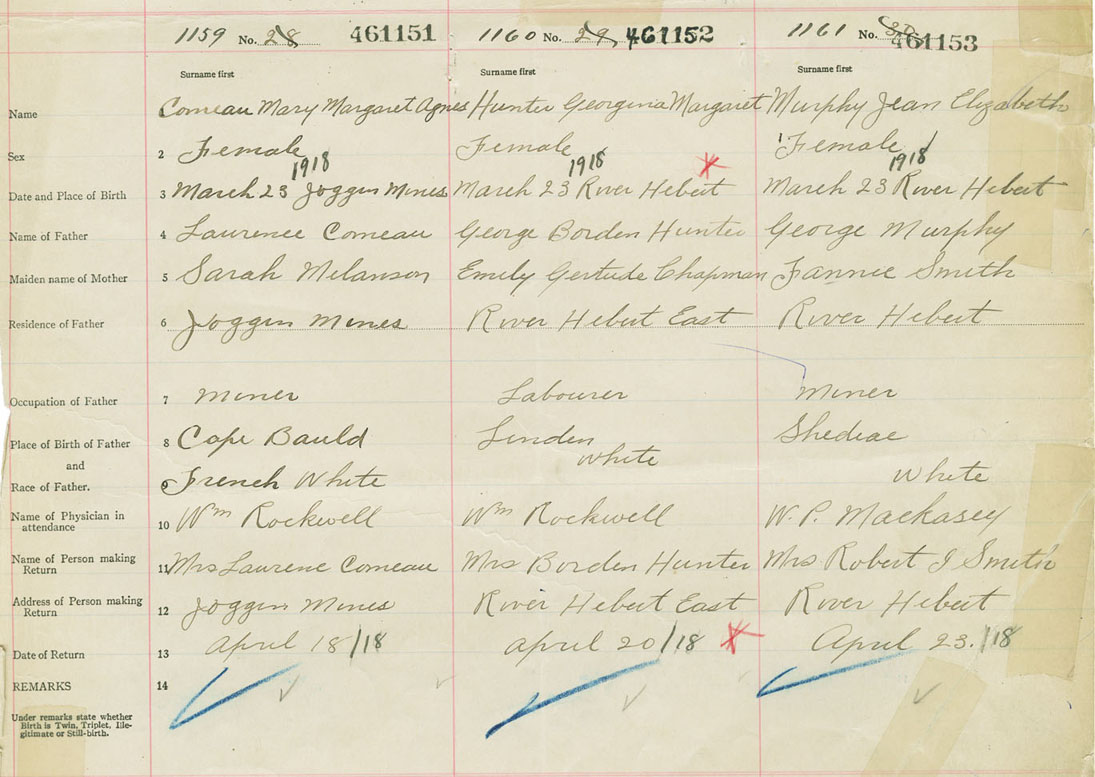 1159 No. 28 461151 1160 No. 29 461152 1161 No. 30 461153
Surname first Surname first Surname first
Name Comeau Mary Margaret Agnes Hunter Georgina Margaret Murphy Jean Elizabeth
Sex 2 Female Female Female
1918 1918 1918
Date and Place of Birth 3 March 23 Joggin Mines March 23 River Hebert March 23 River Hebert
Name of Father 4 Laurence Comeau George Borden Hunter George Murphy
Maiden name of Mother 5 Sarah Melanson Emily Gertude Chapman Fannie Smith
Residence of Father 6 Joggin Mines River Hebert East River Hebert
Occupation of Father 7 Miner Labourer Miner
Place of Birth of Father 8 Cape Bauld Linden Shediac
and White
Race of Father. 9 French White White
Name of Physician in
attendance 10 Wm Rockwell Wm Rockwell W. P. Mackasey
Name of Person making
Return 11 Mrs Laurenc Comeau Mrs Borden Hunter Mrs Robert J Smith
Address of Person making
Return 12 Joggin Mines River Hebert East River Hebert
Date of Return 13 April 18/18 April 20/18 April 23./18
REMARKS 14
Under remarks state whether
Birth is Twin, Triplet, Ille-
gitimate or Still-birth.